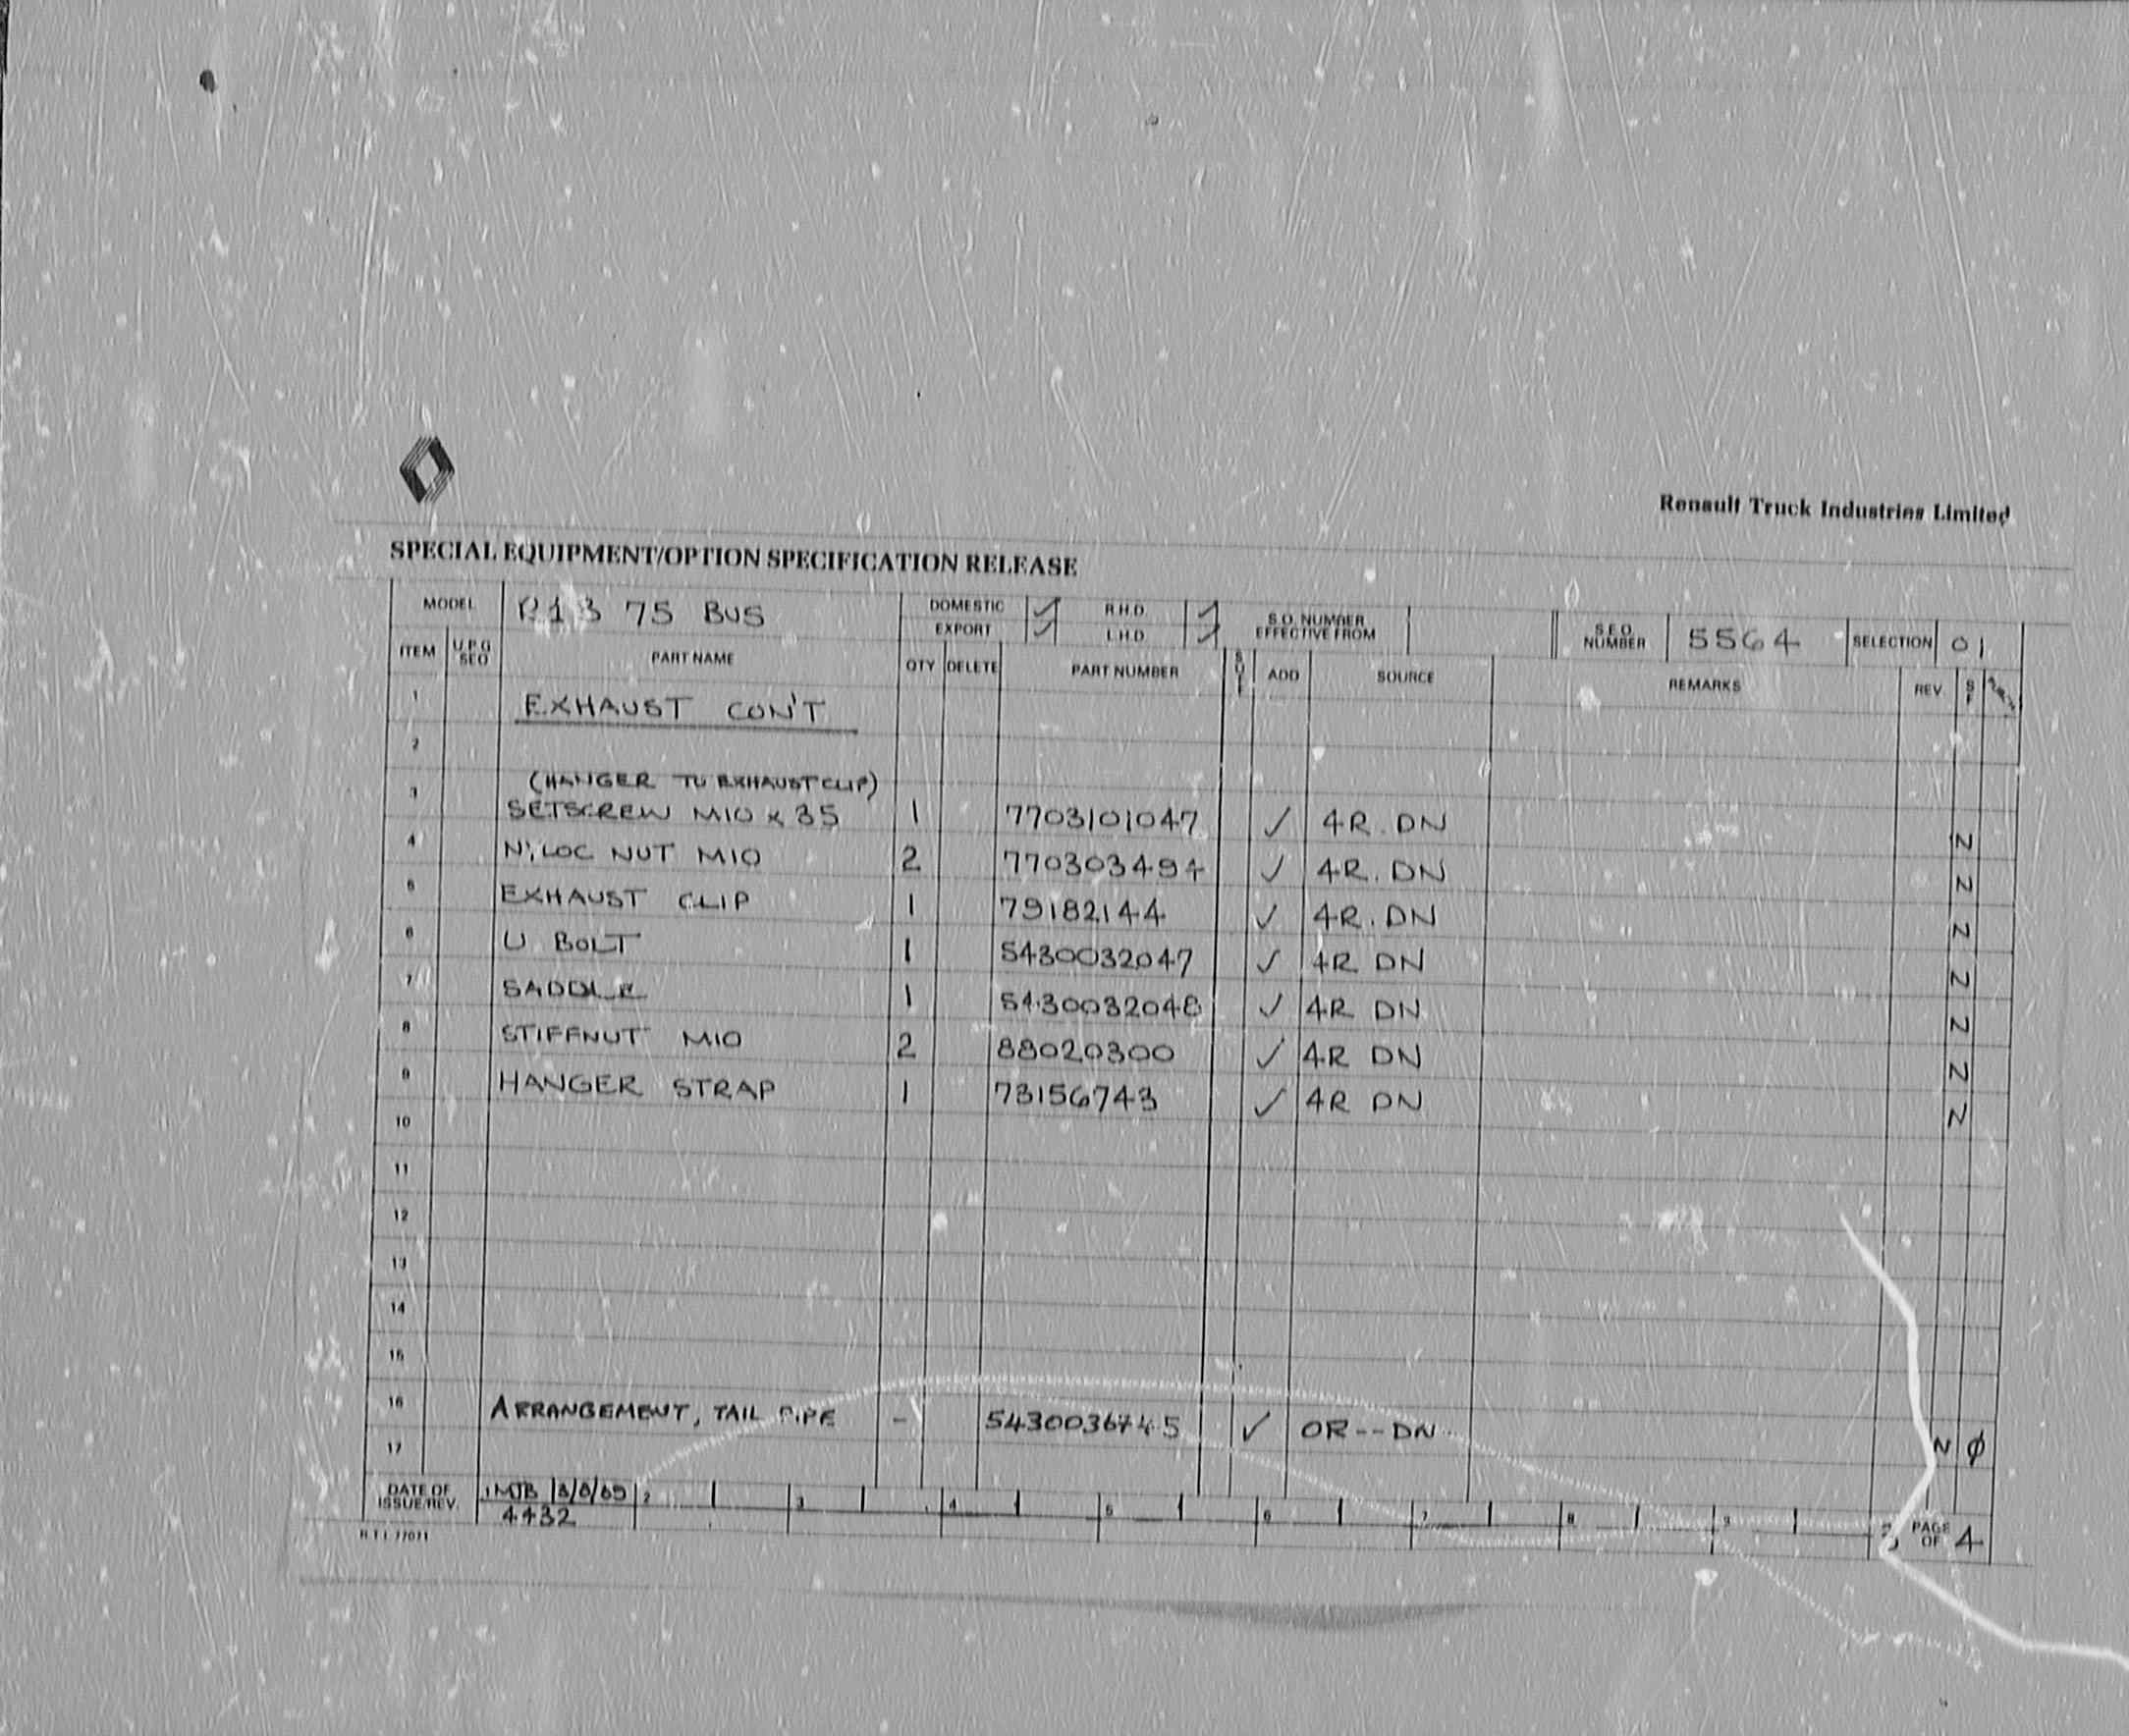 Renault Truck Industries Limited
SPECIAL EQUIPMENT/OPTION SPECIFICATION RELEASE
MODEL 75 BUS DOMESTIC ✓ R.H.D. ✓ S.O. NUMBER EFFECTIVE FROM S.E.O. NUMBER 5564 SELECTION 01
EXPORT ✓ L.H.D. ✓
ITEM U.P.G SEQ PART NAME QTY DELETE PART NUMBER ADD SOURCE REMARKS REV.
1 EXHAUST CON'T
2
(HANGER TO EXHAUST CLIP)
3 SETSCREW M10 x 35 1 7703101047 ✓ 4R. DN N
4 NYLOC NUT M10 2 770303494 ✓ 4R. DN N
5 EXHAUST CLIP 1 79182144 ✓ 4R. DN N
6 U BOLT 1 5430032047 ✓ 4R DN N
7 SADDLE 1 5430032048 ✓ 4R DN N
8 STIFFNUT M10 2 88020300 ✓ 4R DN N
9 HANGER STRAP 1 73156743 ✓ 4R DN N
10
11
12
13
14
15
16 ARRANGEMENT, TAIL PIPE - 5430036745 ✓ OR--DN N Ø
17
DATE OF ISSUE/REV. 1 MJB 2 3 4 5 6 7 8 9 PAGE OF 4
4432
R.T.I. 77071